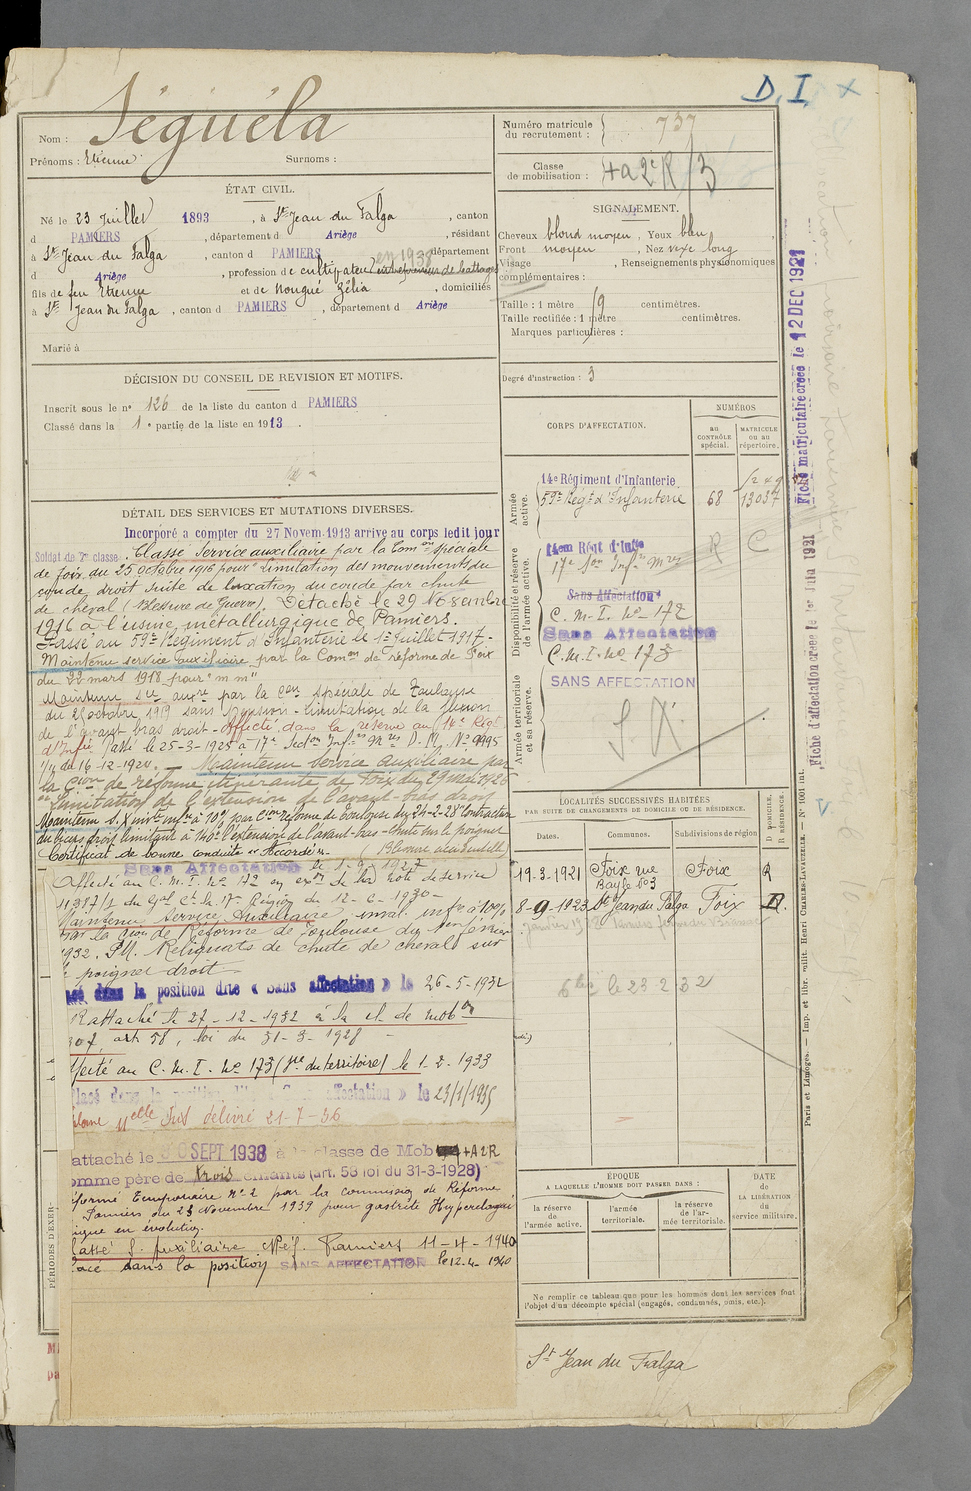 D. I. x
Nom : Séguéla
Prénoms : Etienne
Surnoms :
Numéro matricule
du recrutement : 737
Classe
de mobilisation : 4a 2e R/3
ÉTAT CIVIL.
Né le 23 Juillet 1893, à St Jean du Falga, canton
d PAMIERS, département d Ariège, résidant
à St Jean du Falga, canton d PAMIERS, département
en 1938
d Ariège, profession de cultivateur (entrepreneur de battages
fils de feu Etienne et de Nougué Zélia, domiciliés
à St Jean du Falga, canton d PAMIERS, département d Ariège
Marié à
SIGNALEMENT.
Cheveux blond moyen, Yeux bleu,
Front moyen, Nez vexe long
Visage , Renseignements physionomiques
complémentaires :
Taille : 1 mètre 69 centimètres.
Taille rectifiée : 1 mètre centimètres.
Marques particulières :
Degré d'instruction : 3
DÉCISION DU CONSEIL DE REVISION ET MOTIFS.
Inscrit sous le no 126 de la liste du canton d PAMIERS
Classé dans la 1e partie de la liste en 1913.
DÉTAIL DES SERVICES ET MUTATIONS DIVERSES.
Incorporé a compter du 27 Novem. 1913 arrive au corps ledit jour
Soldat de 2e classe. Classé Service auxiliaire par la Comon spéciale
de Foix du 25 octobre 1916 pour "limitation des mouvements du
coude droit suite de luxation du coude par chute
de cheval (Blessure de Guerre). Détaché le 29 Novembre
1916 à l'usine métallurgique de Pamiers.
Passé au 59e Régiment d'Infanterie le 1er Juillet 1917 -
Maintenu service auxiliaire par la Comon de réforme de Foix
du 22 mars 1918 pour "m m"
Maintenu sce auxre par la Con spéciale de Toulouse
du 2 octobre 1919 sans pension - limitation de la flexion
de l'avant bras droit - Affecté dans la réserve au 14e Régt
d'Infie Passé le 25-3-1925 à 17e Section Infers Mres D. M. No 9995
1/11 du 16-12-1924. - Maintenu service auxiliaire par
la Cion de réforme itinérante de Foix du 29 mai 1925
limitation de l'extension de l'avant-bras droit
Maintenu S. X inv. infre à 10% par Cion réforme de Toulouse du 24-2-28 "Contraction
du biceps droit limitant à 140° l'extension de l'avant-bras - chute sur le poignet
Certificat de bonne conduite "Accordé". (Blessure accidentelle)
Sans Affectation le 1-9-1927
Affecté au C. M. I. No 172 en exon de la note de service
11317/1 du Gral Ct la 17e Région du 12-6-1930 -
Maintenu Service Auxiliaire inval. infre à 10%
par la Cion de Réforme de Toulouse du 1er février
1932. P.M. Reliquats de chute de cheval sur
le poignet droit
dans la position dite « Sans affectation » le 26-5-1932
Rattaché le 27-12-1932 à la cl. de mobon
1907, art. 58, loi du 31-3-1928 -
cté au C. M. I. No 173 (Sce du territoire) le 1-2-1933
placé dans la position dite « Sans affectation » le 23/1/1935
délivré 21-7-36
attaché le 30 SEPT 1938 à la classe de Mob +A2R
omme père de trois enfants (art. 58 loi du 31-3-1928)
éformé Temporaire no 2 par la commission de Réforme
Pamiers du 23 Novembre 1939 pour gastrite
ique en évolution.
Classé S. Auxiliaire Réf. Pamiers 11-4-1940
lacé dans la position SANS AFFECTATION le 12.4.1940
PÉRIODES D'EXER-
CORPS D'AFFECTATION.
NUMÉROS
au
CONTRÔLE
spécial.
MATRICULE
ou au
répertoire.
Armée
active.
14e Régiment d'Infanterie
59e Régt d'Infanterie 68 13037
Disponibilité et réserve
de l'armée active.
14em Régt d'Infie
17e Son Infrs Mres R C
Sans Affectation
C. M. I. No 172
Sans Affectation
C. M. I. no 173
Armée territoriale
et sa réserve.
SANS AFFECTATION
S X.
LOCALITÉS SUCCESSIVES HABITÉES
PAR SUITE DE CHANGEMENTS DE DOMICILE OU DE RÉSIDENCE.
Dates.
Communes.
Subdivisions de région
D DOMICILE.
R RÉSIDENCE.
19-3-1921 Foix rue Bayle no 3 Foix R
8-9-1923 St Jean du Falga Foix D.
le 23 2 32
ÉPOQUE
A LAQUELLE L'HOMME DOIT PASSER DANS :
la réserve
de
l'armée active.
l'armée
territoriale.
la réserve
de l'ar-
mée territoriale.
DATE
de
LA LIBÉRATION
du
service militaire.
Ne remplir ce tableau que pour les hommes dont les services font
l'objet d'un décompte spécial (engagés, condamnés, omis, etc.).
St Jean du Falga
Fiche matriculaire creee le 12 DEC 1921
Fiche d'affectation creee le 1er Juin 1921
Paris et Limoges. — Imp. et libr. milit. Henri CHARLES-LAVAUZELLE. — No 1001 int.